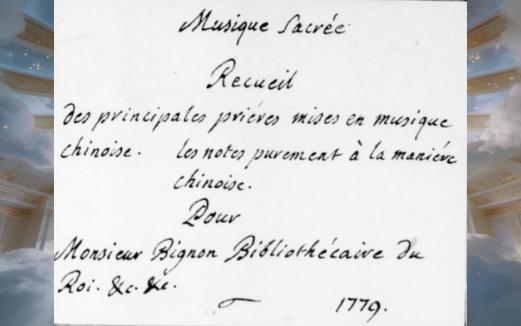 Musique Sacrée
Recueil
des principales priéres mises en musique
chinoise. les notes purement à la maniére
chinoise.
Pour
Monsieur Bignon Bibliothécaire du
Roi. &c. &c.
1779.